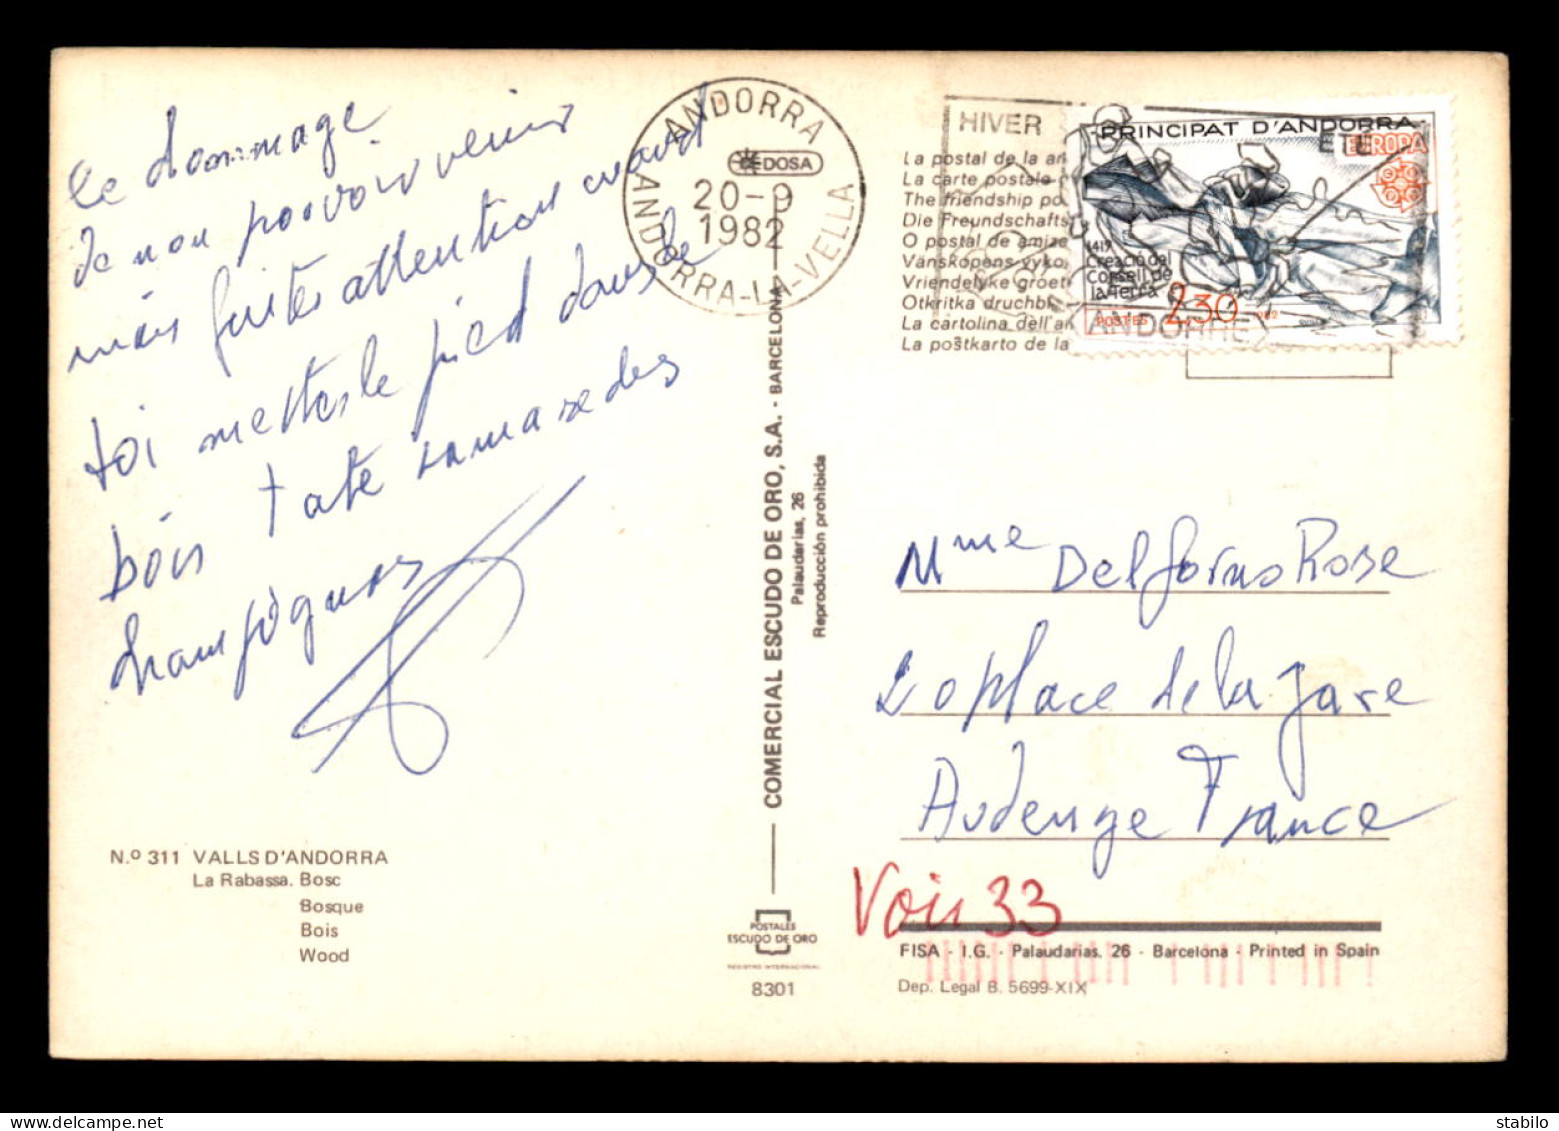 le dommage
de non pouvoir venir
mais faites attention avant
toi mettre le pied dans le
bois tate ramasse des
champignons
N.º 311 VALLS D'ANDORRA
La Rabassa. Bosc
Bosque
Bois
Wood
ANDORRA
CEDOSA
20-9
1982
ANDORRA-LA-VELLA
COMERCIAL ESCUDO DE ORO, S.A. - BARCELONA
Palaudarias, 26
Reproducción prohibida
POSTALES
ESCUDO DE ORO
REGISTRO INTERNACIONAL
8301
HIVER
ETE
ANDORRE
La postal de la am
La carte postale
The friendship po
Die Freundschafts
O postal de amiza
Vänskapens vyko
Vriendelyke groet
Otkritka druchb
La cartolina dell'am
La poŝtkarto de la
PRINCIPAT D'ANDORRA
EUROPA
1419
Creació del
Consell de
la Terra
POSTES 2,30 1982
Mme Delforno Rose
20 place de la gare
Audenge France
Voir 33
FISA - I.G. - Palaudarias, 26 - Barcelona - Printed in Spain
Dep. Legal B. 5699-XIX